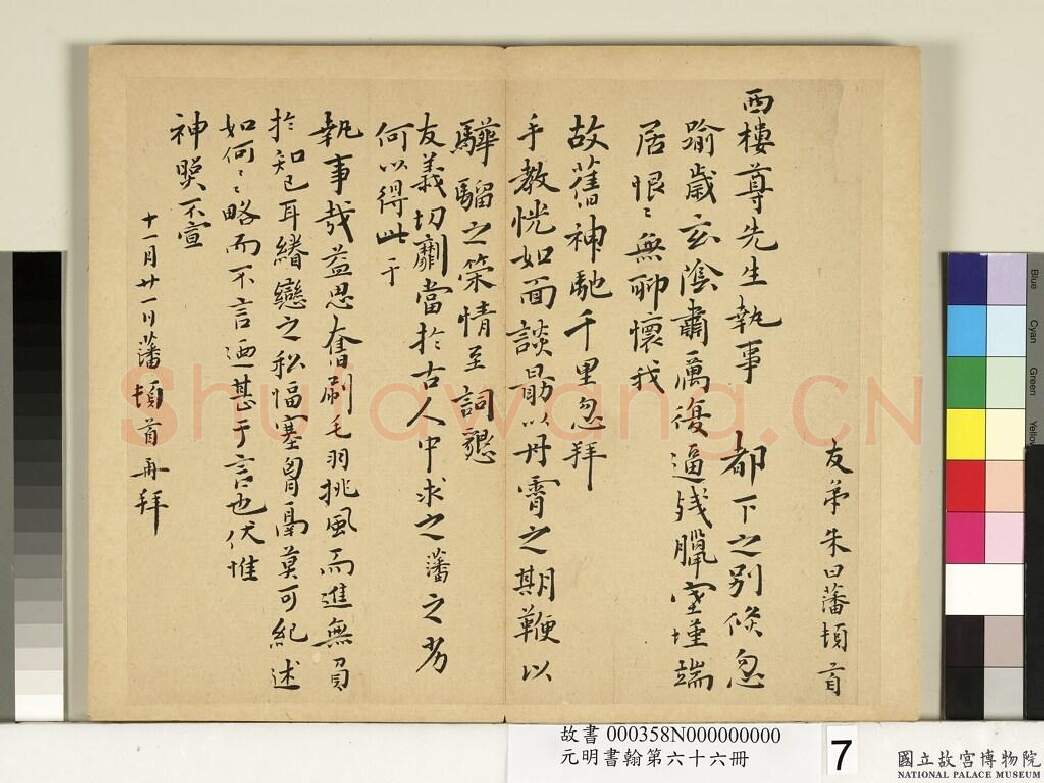 友弟朱曰藩頓首
西樓尊先生執事 都下之別倏忽
踰歲玄陰肅厲復逼殘臘窒墐端
居恨〻無聊懷我
故舊神馳千里忽拜
手教恍如面談勗以丹霄之期鞭以
驊騮之策情至詞懇
友義切劘當於古人中求之藩之劣
何以得此于
執事哉益思奮刷毛羽挑風而進無負
於知已耳綣戀之私愊塞胷鬲莫可紀述
如何〻略而不言迺甚于言也伏惟
神照不宣
十一月廿一日藩頓首再拜
Shufawang.CN
故書 000358N000000000
元明書翰第六十六冊
7
國立故宮博物院
NATIONAL PALACE MUSEUM
Blue
Cyan
Green
Yellow